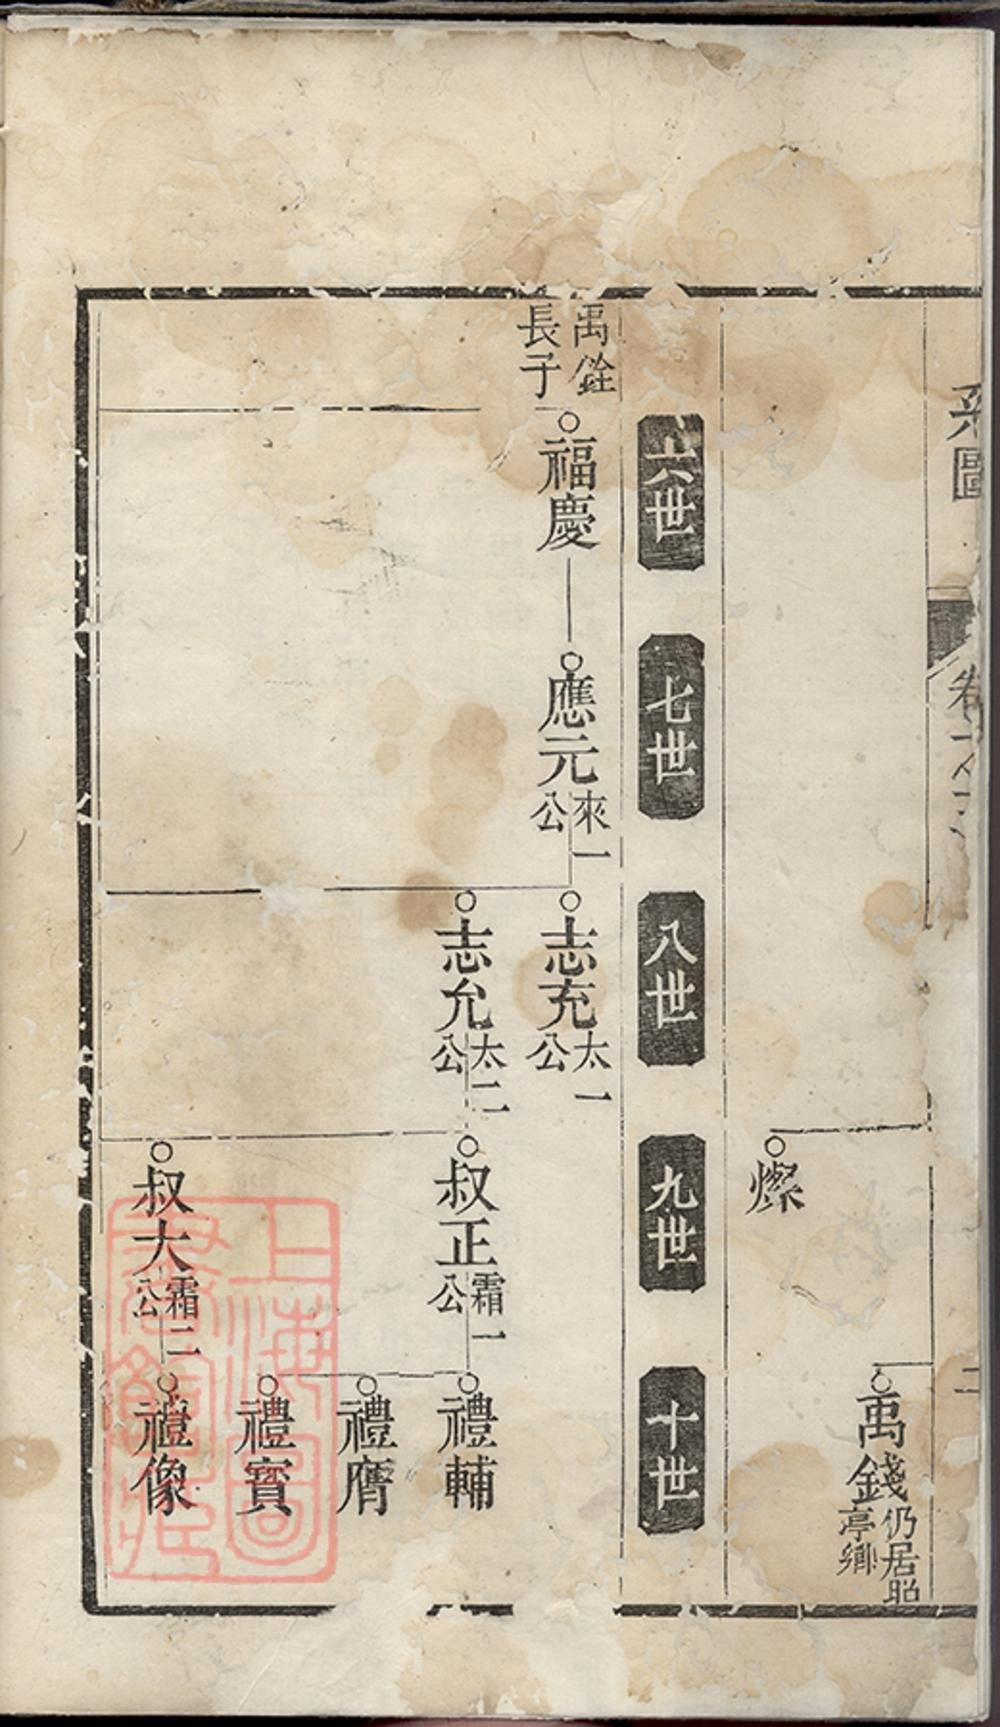 系圖
卷
二
禹錢仍居昭
亭鄉
燦
六世
七世
八世
九世
十世
禹銓
長子
福慶
應元來一
公
志充太一
公
志允太二
公
叔正霜一
公
叔大霜二
公
禮輔
禮膺
禮寳
禮像
上海圖
書館藏